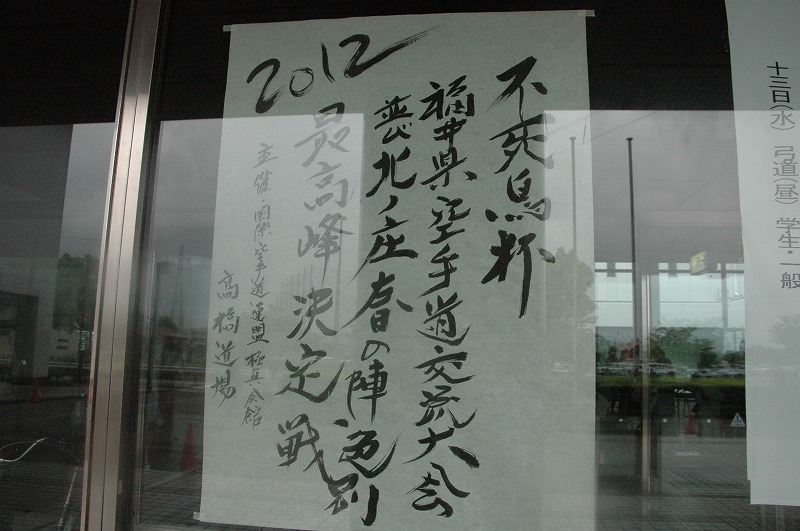 十三日(水) 弓道(昼) 学生・一般
不死鳥杯
福井県空手道交流大会
北ノ庄春の陣色別
2012
最高峰決定戦
主催・国際空手道連盟 極真会館
高橋道場